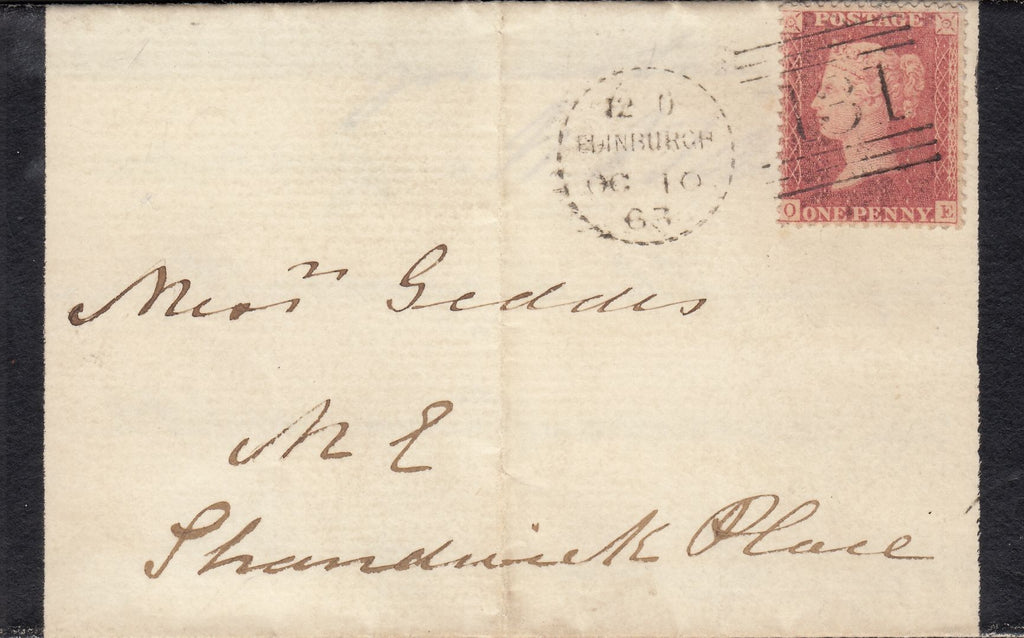 POSTAGE
131
O ONE PENNY E
12 O
EDINBURGH
OC 10
63
Geddes
Shandwick Place